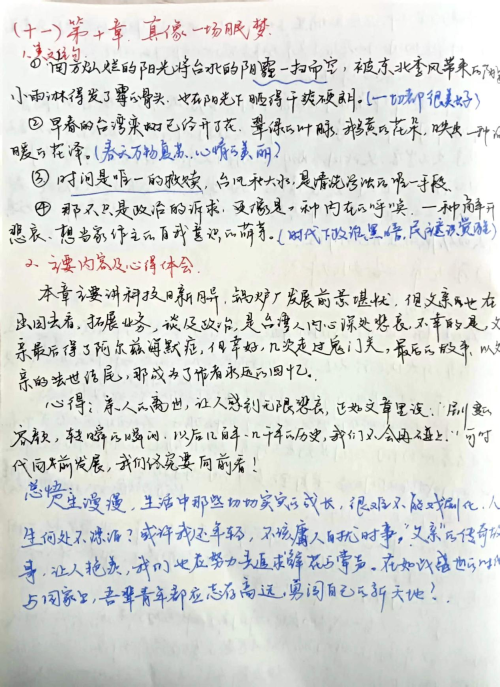 (十一)第十章 真像一场眠梦.
1.美文佳句
① 南方灿烂的阳光将台北的阴霾一扫而空,被东北季风带来的阴
小雨淋得发了霉的骨头,也在阳光下晒得干爽硬朗。(一切都很美好)
② 早春的台湾栾树已经开了花,翠绿的叶脉,鹅黄的花朵,
暖的花泽。(春天万物复苏,心情的美丽?
③ 时间是唯一的救赎,台风和大水,是清洗污浊的唯一手段
④ 那不只是政治的诉求,更像是一种内在的呼唤,一种
悲哀、想当家作主的自我意识的萌芽。(时代下政治黑暗,民意识觉醒)
2.主要内容及心得体会
本章主要讲科技日新月异,锅炉厂发展前景堪忧,但父亲也在
出国去看,拓展业务,谈及政治,是台湾人内心深处悲哀,不幸的是,父
亲最后得了阿尔兹海默症,但幸好,几次走过鬼门关,最后的故事,以父
亲的去世结尾,那成为了作者永远的回忆。
心得:亲人的离世,让人感到无限悲哀,正如文章里说:"
容颜,转瞬的瞬间,以后几百年、几千年的历史,我们不会再碰上."可时
代向前发展,我们终究要向前看!
感悟
人生漫漫,生活中那些切切实实的成长,很难不能戏剧化,人
生何处不漂泊?或许我还年轻,不该庸人自扰时事。"父亲"的传奇故
事,让人艳羡,我们也在努力去追求鲜花与掌声。在如此盛世的时代
与国家里,吾辈青年都应志存高远,勇闯自己的新天地?